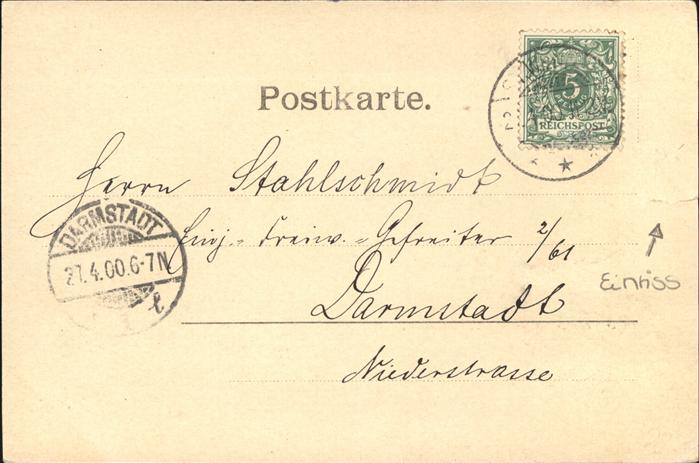 Postkarte.
5
REICHSPOST
Herrn Stahlschmidt
Einj.-Freiw.-Gefreiter 2/61
Darmstadt
Niederstrasse
DARMSTADT
27.4.00.6-7N
Einriss